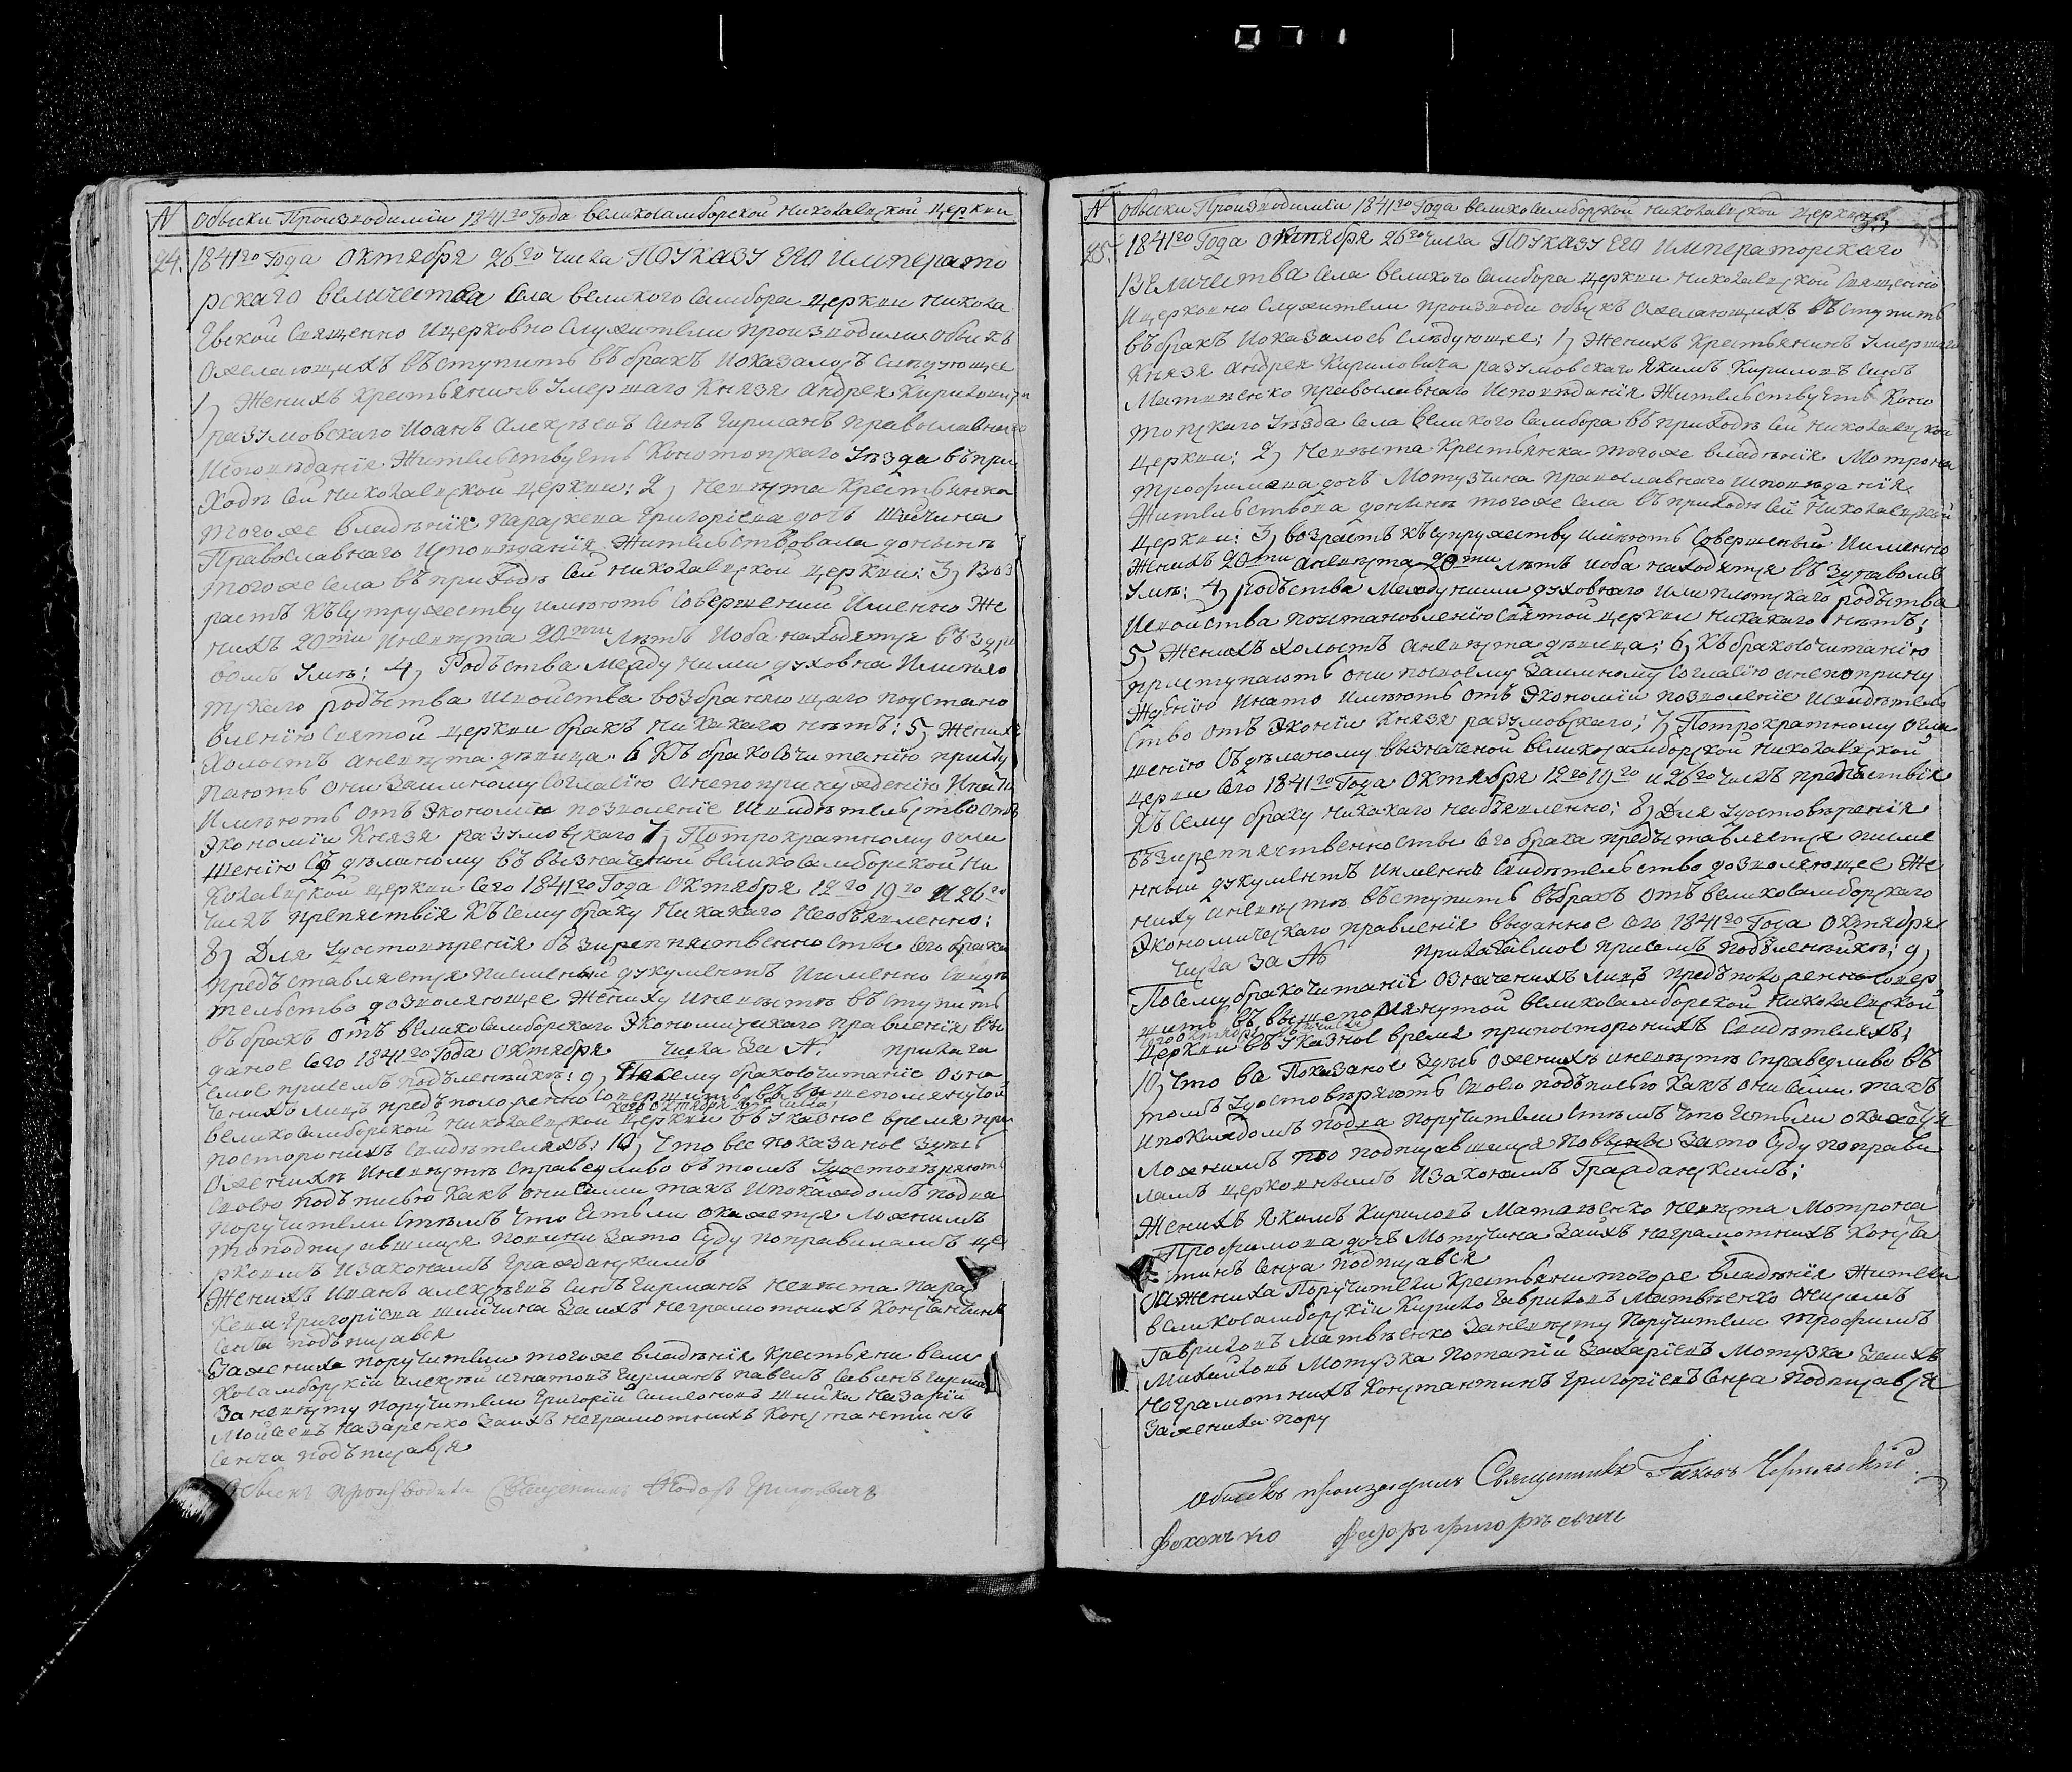 N Обыски Производимїи 1841го Года великосамборской николаевской церкви
24. 1841го Года Октября 26го числа ПО Указу ЕГО ИМПЕРАТО
рскаго величества Села великого Самбора церкви никола
Евской Священно И церковно Служители производили обыскъ
О желающихъ въступить въ бракъ И оказалось Следующее
1) Женихъ Крестьянинъ Умершаго Князя андрея Кириловича
разумовскаго Иоанъ Алексѣевъ Синъ Гирманъ православнаго
Исповѣданїя Жительствуетъ Конотопскаго Уезда въ при
ходѣ Сей николаевской церкви: 2) Невѣста Крестьянка
того же владѣнїя Параскева Григорїева дочь Шийчина
Православнаго Исповѣданїя Жительствовала донынѣ
того же Села въ приходѣ Сей николаевской церкви: 3) Воз
растъ Къ Супружеству имѣютъ Совершений Именно Же
нихъ 20ти И невѣста 20ти Лѣтъ И оба находятся въ здра
вомъ Умѣ: 4) Родъства Между ними духовна Или пло
тскаго родъства И свойства возбраняющаго по устано
вленїю Святой церкви бракъ Никакаго нѣтъ: 5) Женихъ
Холостъ а невѣста дѣвица. 6 Къ бракосочитанїю присту
паютъ они Заимному Согласїю а не по принужденїю И на то
Имѣютъ отъ Экономїи позволенїе И свидѣтельство отъ
Экономїи Князя разумовскаго 7) По трократному огла
шенїю Сдѣланому въ вызначеной великосамборской Ни
колаевской церкви Сего 1841го Года Октября 12го 19го и 26го
Числъ препяствїя Къ Сему браку Никакаго Необъявленно:
8) Для Удостовѣренїя безпрепятственности Сего брака
предъставляется писменый документъ Именно Свидѣ
тельство дозволяющее Жениху И невѣстѣ въступить
въ бракъ отъ великосамборскаго Экономическаго правленїя вы
даное Сего 1841го Года Октября числа За N. прилага
емое при семъ подълѣнникѣ: 9) По сему бракосочитанїе Озна
ченихъ лицъ предъположенно Совершить въ вышепомянутой
великосамборской николаевской церкви сего октября числа въ Указное время при
посторонихъ Свидѣтеляхъ: 10) Что все показаное Здѣсь
О женихѣ И невѣстѣ Справедливо въ томъ Удостовѣряютъ
Своею подъписью Какъ они Сами такъ И по каждомъ по два
поручители Стѣмъ что Естьли окажется Ложнимъ
то подписавшиися повини За то Суду по правиламъ це
рквимъ И Законамъ Гражданскимъ
Женихъ Иванъ алексѣевъ Синъ Гирманъ невѣста Пара
Кева Григорїева шийчина За ихъ неграмотнихъ Константинъ
Сенча подъписався
За жениха поручители того же владѣнїя Крестьяни вели
Косамборскїи алексѣй игнатовъ Гирманъ павелъ Савинъ Гирман
За невѣсту поручители Григорїй Симеоновъ шийка Назарїй
Мойсеевъ Назаренко За ихъ неграмотнихъ Константинъ
Сенча подъписався
Обыскъ производили Священникъ Федоръ Григоровичъ
N Обыски Производимїи 1841го Года великосамборской николаевской церкви
25. 1841го Года Октября 26го Числа ПО УКАЗУ ЕГО ИМПЕРАТОРСКАГО
ВЕЛИЧЕСТВА Села великого Самбора церкви николаевской Священно
И церковно Служители производи обускъ О желающихъ въступить
въ бракъ И оказалось Слѣдующее: 1) Женихъ Крестьянинъ Умершаго
Князя андрея Кириловича разумовскаго Якимъ Кириловъ Синъ
Матвѣенко православнаго Исповѣданїя Жительствуетъ Коно
топскаго Уѣзда Села великого Самбора въ приходѣ Сей николаевской
церкви: 2) Невѣста Крестьянка того же владѣнїя Мотрона
Трофимова дочь Мотузчина православнаго Исповѣданїя
Жительствова донинѣ того же Села въ приходѣ Сей Николаевской
церкви: 3) возрастъ Къ Супружеству имѣютъ Совершений Именно
Женихъ 20ти а невѣста 20ти лѣтъ И оба находятся въ здравомъ
Умѣ: 4) родъства Между ними духовнаго Или плотскаго родъства
И свойства по установленїю Святой церкви Никакаго нѣтъ;
5) Женихъ холостъ а невѣста дѣвица; 6) Къ бракосочитанїю
приступаютъ они по своему Заимному Согласїю а не по прину
ждѣнїю И на то Имѣютъ отъ Экономїи позволенїе И свидѣтель
ство отъ Эконїи Князя разумовскаго; 7) По трократному огла
шенїю Съдѣланому въ вызначеной великосамборской николаевской
церкви Сего 1841го Года Октября 12го 19го и 26го Числъ препяствїя
Къ Сему браку никакаго не объявленно: 8) Для Удостовѣренїя
безпрепятственности Сего брака предъставляется писме
нный документъ Именно Свидѣтельство дозволяющее Же
ниху И невѣстѣ въступить въ бракъ отъ великосамборскаго
Экономическаго правленїя выданное Сего 1841го Года Октября
Числа За N прилагаемое при семъ подълѣнникѣ; 9)
По сему бракочитанїе означенихъ лицъ предъположенно Совер
шить въ вышепомянутой великосамборской николаевской
церкви сего октября числа въ Указное время при посторонихъ Свидѣтеляхъ;
10) Что все Показаное Здѣсь О женихѣ И невѣстѣ Справедливо въ
томъ Удостовѣряютъ Своею подъписью Какъ они Сами такъ
И по каждомъ по два поручители Стѣмъ что Естьли окажется
Ложнимъ то подписавшиися повини За то Суду по прави
ламъ церковнымъ И Законамъ Гражданскимъ;
Женихъ Якимъ Кириловъ Матвѣенко невѣста Мотрона
Трофимова дочь Мотузчина За ихъ неграмотнихъ Конста
нтинъ Сенча подписався
За Жениха Поручители Крестьяни того же владѣнїя Жители
великосамборскїи Кирило Гавриловъ Матвѣенко
Гавриловъ Матвѣенко За невѣсту Поручители трофимъ
Михайловъ Мотузка Потапїй Захарїевъ Мотузка За ихъ
Неграмотнихъ Константинъ Григорїевъ Сенча подписався
За жениха пору
Обыскъ производилъ Священникъ